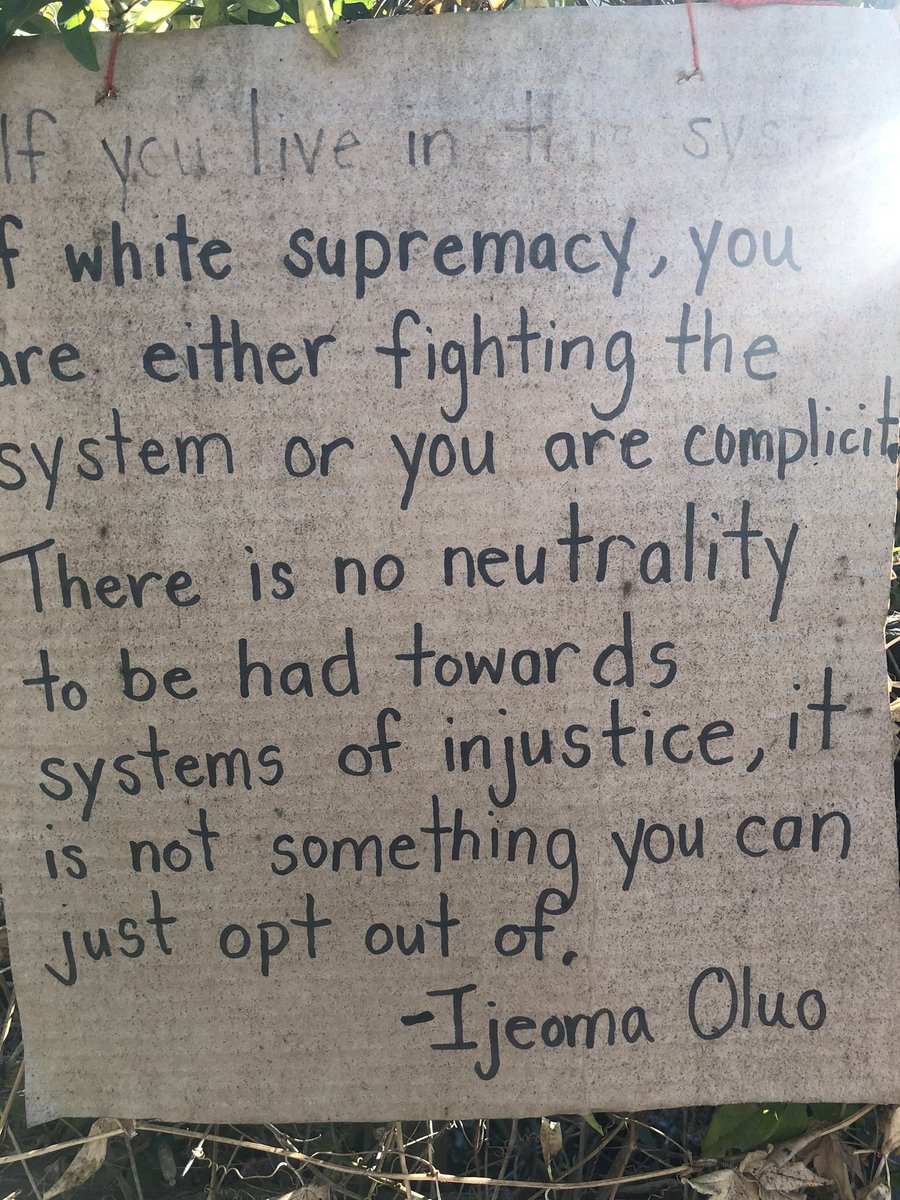 If you live in this syste
f white supremacy, you
are either fighting the
system or you are complicit.
There is no neutrality
to be had towards
systems of injustice, it
is not something you can
just opt out of.
-Ijeoma Oluo